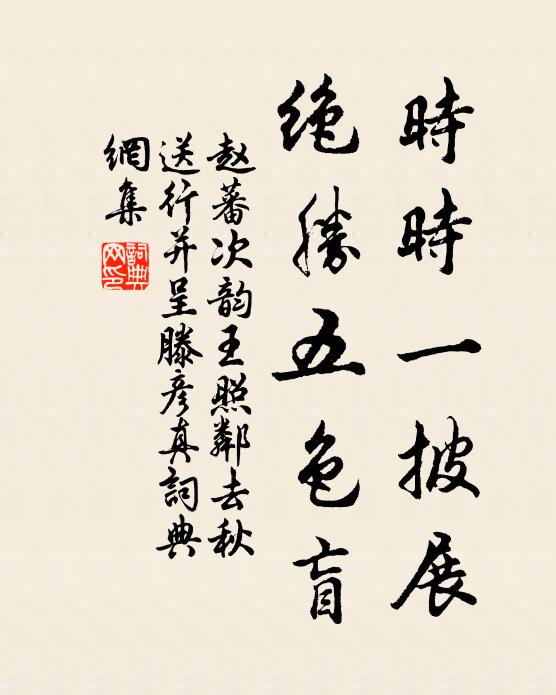 時時一披展
绝勝五色盲
赵蕃次韵王照鄰去秋
送行并呈滕彦真詞典
網集
詞典網印